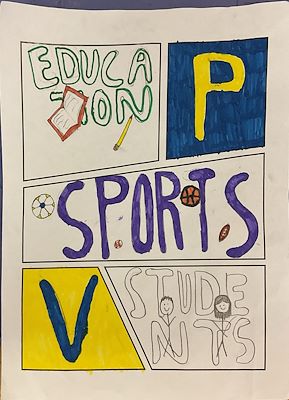 EDUCA
TION
P
SPORTS
V
STUDE
NTS